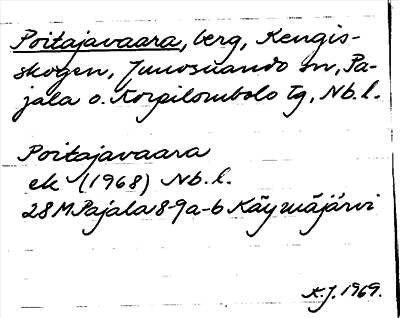 Poitajavaara, berg, Kengis-
skogen, Junosuando sn, Pa-
jala o. Korpilombolo tg, Nb. l.
Poitajavaara
ek (1968) Nb. l.
28M Pajala 8-9a-b Käymäjärvi
K.J. 1969.